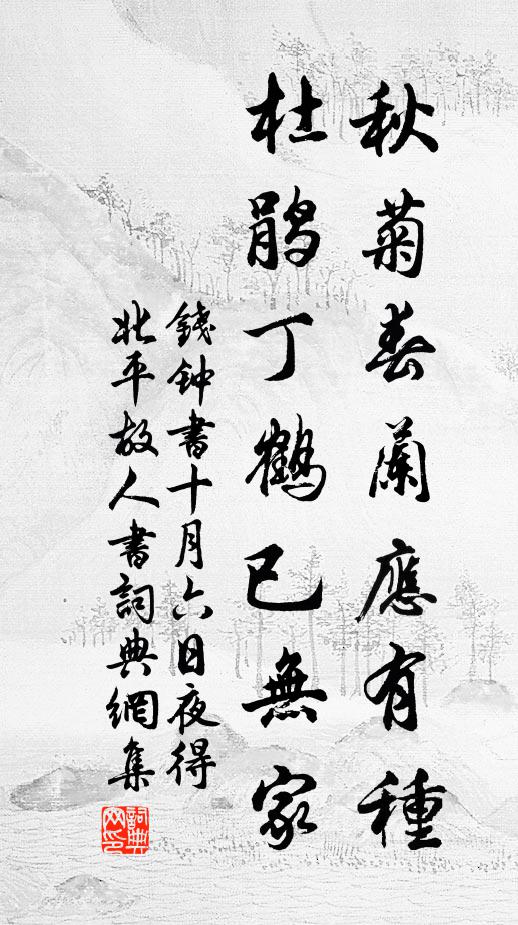 秋菊春蘭應有種
杜鵑丁鶴已無家
錢鍾書十月六日夜得
北平故人書詞典網集
詞典
网印